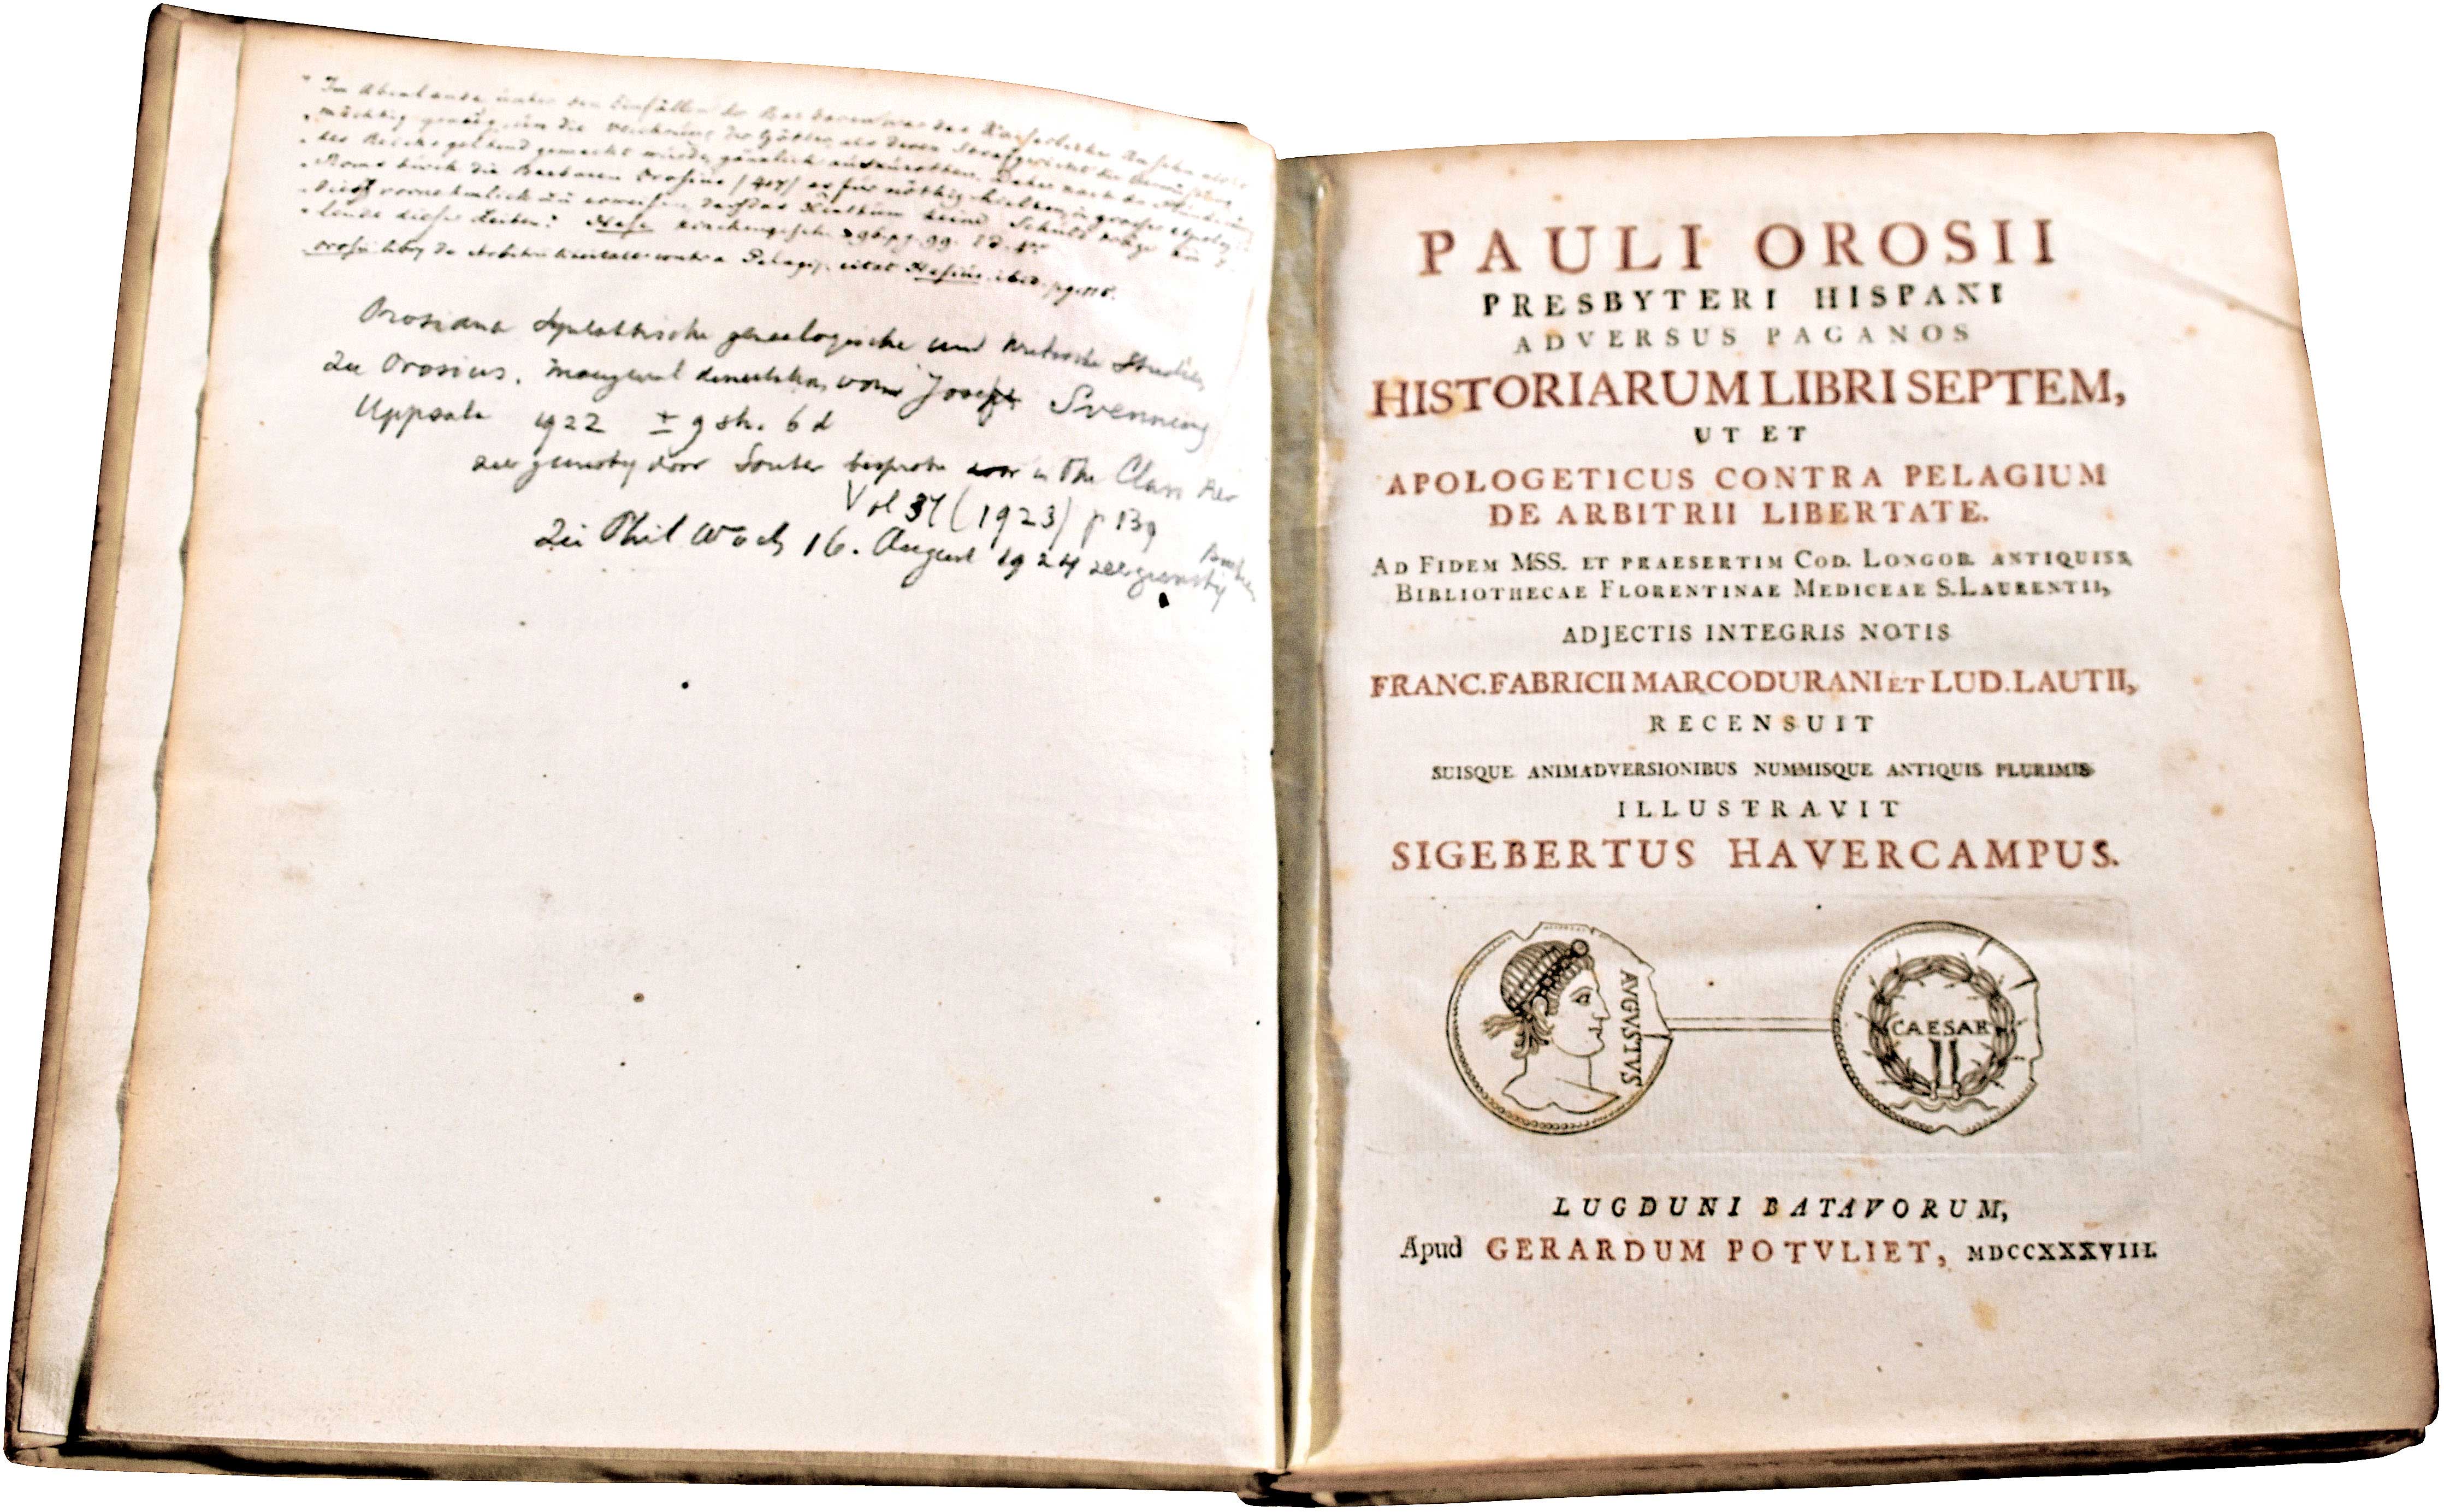 Im Abendlande unter den Einfällen der Barbaren war das Kaiserliche Ansehn nicht
mächtig genug, um die Verehrung der Götter, als deren Strafgericht die
des Reichs geltend gemacht wurde, gänzlich auszurotten. Daher nach der Plünderung
Roms durch die Barbaren Orosius (417) es für nöthig hielten, in grosser
vornehmlich zu erweisen, dass das Xstthum keine Schuld trage
dieser Zeiten: Hase Kirchengesch. pg. 99.
Orosii libr. de Arbitrii libertate contra Pelag. citat Hasius ibid. pg. 115.
Orosiana Syntaktische und kritische Studien
zu Orosius. Inaugural dissertation von Josef Svennung
Uppsala 1922 ± 9 sh. 6 d
zeer gunstig door Souter besproken in The Class Rev
Vol 37 (1923) p 139
Zie Phil Woch 16. August 1924 zeer gunstig
PAULI OROSII
PRESBYTERI HISPANI
ADVERSUS PAGANOS
HISTORIARUM LIBRI SEPTEM,
UT ET
APOLOGETICUS CONTRA PELAGIUM
DE ARBITRII LIBERTATE.
AD FIDEM MSS. ET PRAESERTIM COD. LONGOB. ANTIQUISS.
BIBLIOTHECAE FLORENTINAE MEDICEAE S. LAURENTII,
ADJECTIS INTEGRIS NOTIS
FRANC. FABRICII MARCODURANI ET LUD. LAUTII,
RECENSUIT
SUISQUE ANIMADVERSIONIBUS NUMMISQUE ANTIQUIS PLURIMIS
ILLUSTRAVIT
SIGEBERTUS HAVERCAMPUS.
AVGVSTVS
CAESAR
LUGDUNI BATAVORUM,
Apud GERARDUM POTVLIET, MDCCXXXVIII.